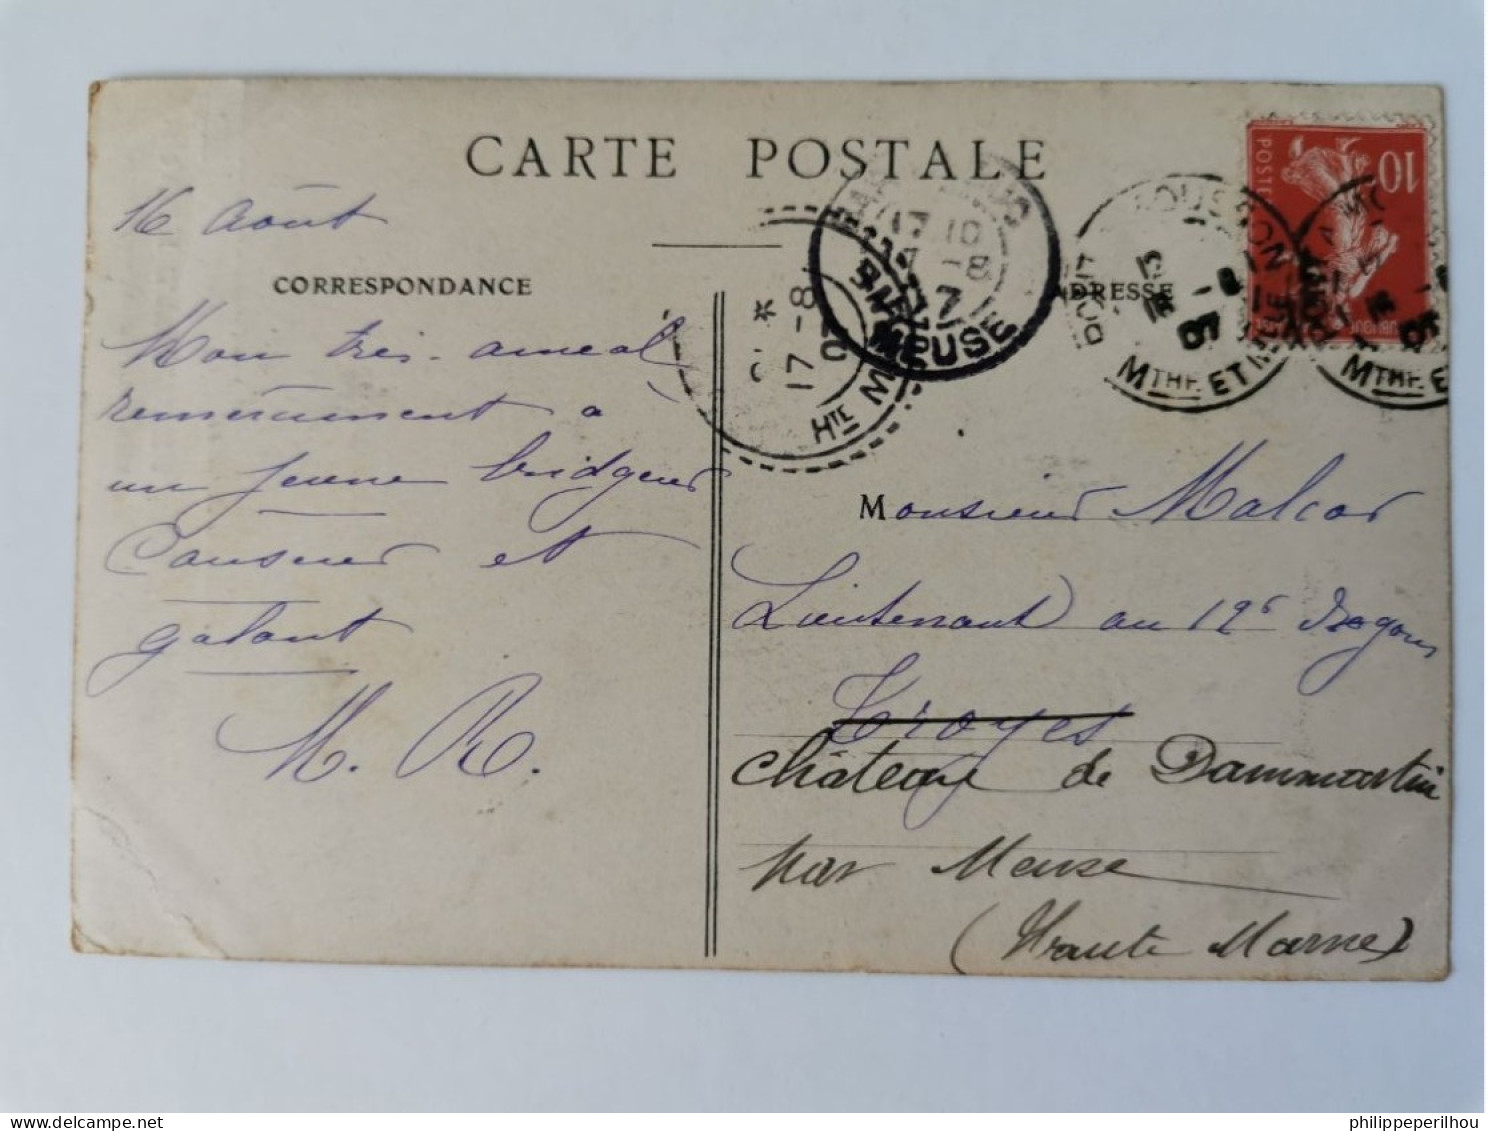 CARTE POSTALE
16 Août
CORRESPONDANCE
ADRESSE
Mon très amical
remerciement à
un jeune bridgeur
Causeur et
galant
M. R.
Monsieur Malcor
Lieutenant au 12e Dragons
Troyes
Château de Dammartin
par Meuse
(Haute Marne)
17 10
17 -8
MEUSE
17 -8
07
HTE M
MTHE ET MLLE
MTHE ET
POSTE
10
philippeperilhou